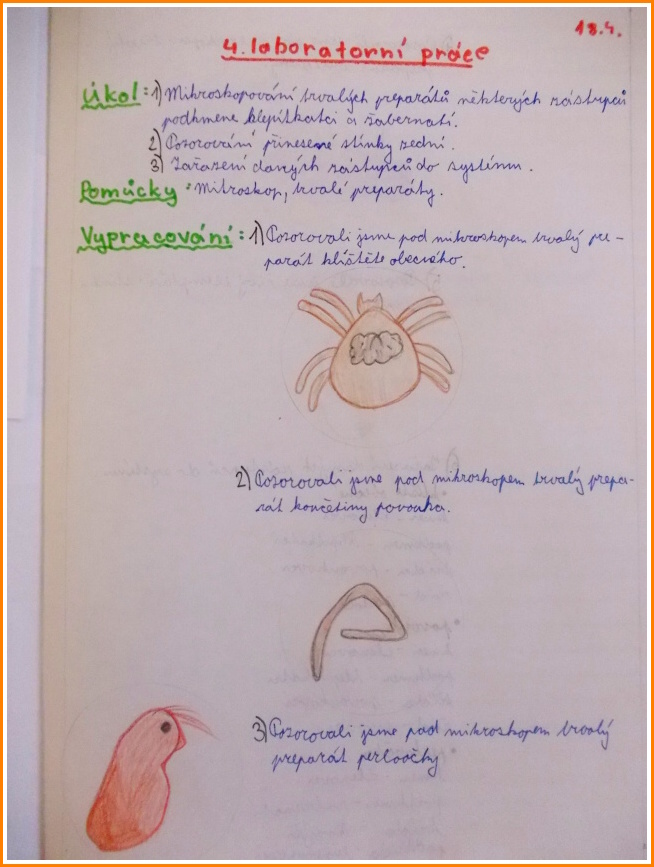 18.4.
4. laboratorní práce
Úkol: 1) Mikroskopování trvalých preparátů některých zástupců
podkmene klepítkatci a žabernatí.
2) Pozorování přinesené stínky zední.
3) Zařazení daných zástupců do systému.
Pomůcky: Mikroskop, trvalé preparáty.
Vypracování: 1) Pozorovali jsme pod mikroskopem trvalý pre-
parát klíštěte obecného.
2) Pozorovali jsme pod mikroskopem trvalý prepa-
rát končetiny pavouka.
3) Pozorovali jsme pod mikroskopem trvalý
preparát perloočky